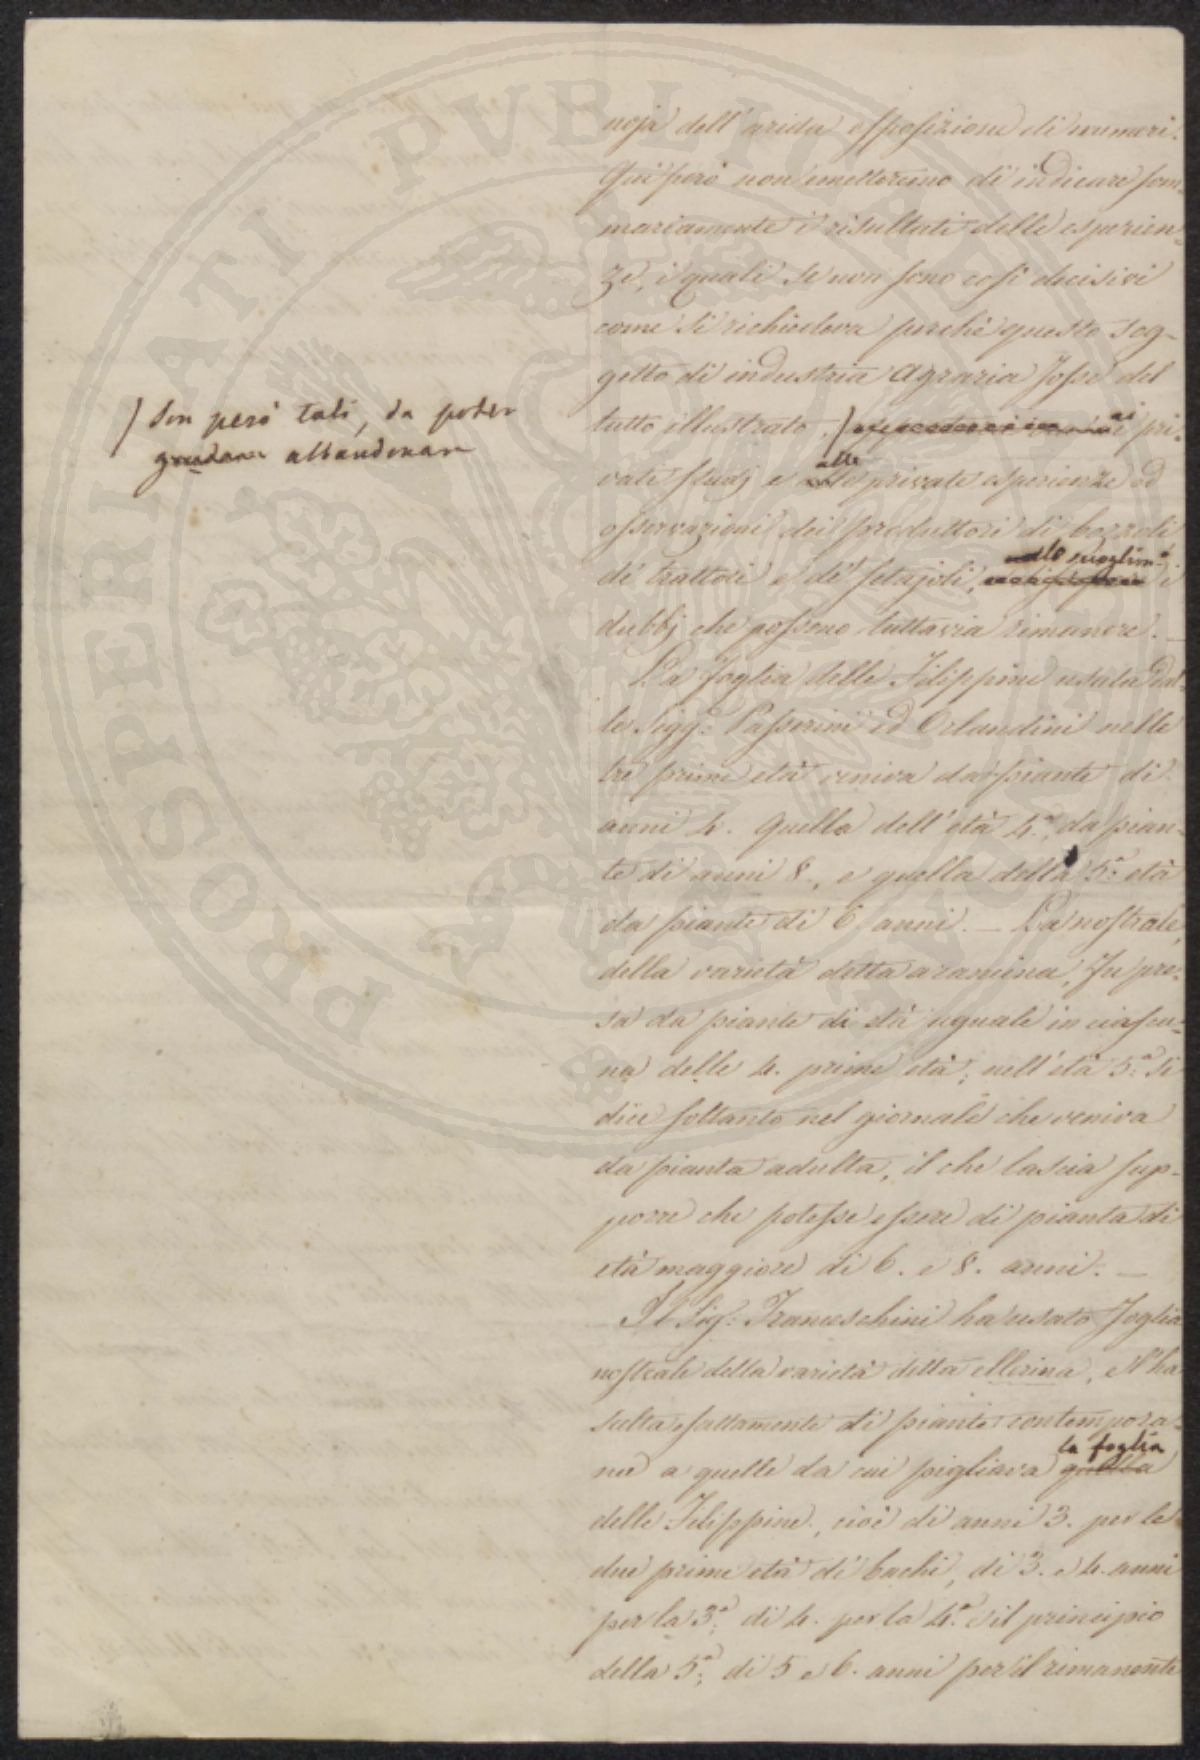 noja dell'arida esposizione di numeri.
Qui però non ometteremo di indicare som-
mariamente i risultati delle esperien-
ze, i quali se non sono così decisivi
come si richiedeva perchè questo sog-
getto di industria agraria fosse del
tutto illustrato. /
ai pri-
/ Son però tali, da poter
abbandonare
vati studj e alle private esperienze ed
osservazioni dei produttori di bozzoli
di trattori e di setajoli, i
dubbj che possono tuttavia rimanere. —
La foglia delle Filippine usata dal-
le Sigg.e Passerini ed Orlandini nelle
tre prime età veniva da piante di
anni 4. Quella dell'età 4.a, da pian-
te di anni 8., e quella della 5.a età
da piante di 6 anni. — La nostrale,
della varietà detta arancina, fu pre-
sa da piante di età uguale in ciascu-
na delle 4. prime età; nell'età 5.a si
dice soltanto nel giornale che veniva
da pianta adulta, il che lascia sup-
porre che potesse essere di pianta di
età maggiore di 6. e 8. anni. —
Il Sig. Franceschini ha usato foglia
nostrale della varietà detta ellerina, e l'ha
scelta esattamente di piante contempora-
nee a quelle da cui pigliava quella
la foglia
delle Filippine, cioè di anni 3. per le
due prime età di bachi, di 3. e 4. anni
per la 3.a, di 4. per la 4.a e il principio
della 5.a, di 5 e 6. anni per il rimanente
PROSPERITATI PVBLICAE AVGENDAE